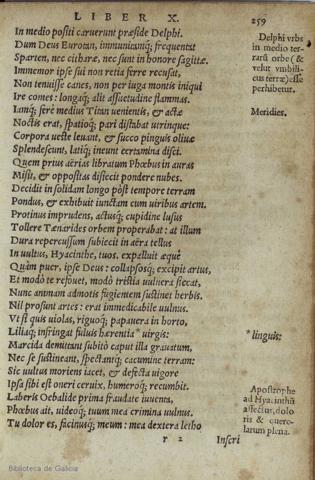 LIBER X. 259
In medio positi caruerunt præside Delphi.
Dum Deus Eurotan, immunitamq; frequentat
Sparten, nec citharæ, nec sunt in honore sagittæ.
Immemor ipse sui non retia ferre recusat,
Non tenuisse canes, non per iuga montis iniqui
Ire comes: longaq; alit assuetudine flammas.
Iamq; ferè medius Titan uenientis, & actæ
Noctis erat, spatioq; pari distabat utrinque:
Corpora ueste leuant, & succo pinguis oliuæ
Splendescunt, latiq; ineunt certamina disci.
Quem prius aërias libratum Phœbus in auras
Misit, & oppositas disiecit pondere nubes.
Decidit in solidam longo pòst tempore terram
Pondus, & exhibuit iunctam cum uiribus artem.
Protinus imprudens, actusq; cupidine lusus
Tollere Tænarides orbem properabat: at illum
Dura repercussum subiecit in aëra tellus
In uultus, Hyacinthe, tuos. expalluit æquè
Quim puer, ipse Deus: collapsosq; excipit artus,
Et modò te refouet, modò tristia uulnera siccat,
Nunc animam admotis fugientem sustinet herbis.
Nil prosunt artes: erat immedicabile uulnus.
Vt si quis uiolas, riguoq; papauera in horto,
Liliaq; infringat fuluis hærentia * uirgis:
Marcida demittant subitò caput illa grauatum,
Nec se sustineant, spectantq; cacumine terram:
Sic uultus moriens iacet, & defecta uigore
Ipsa sibi est oneri ceruix, humeroq; recumbit.
Laberis Oebalide prima fraudate iuuenta,
Phœbus ait, uideoq; tuum mea crimina uulnus.
Tu dolor es, facinusq; meum: mea dextera letho
r 2 Inscri
Delphi vrbs
in medio ter-
rarū orbe (&
velut vmbili-
cus terræ) esse
perhibetur.
Meridies.
* linguis:
Apostrophe
ad Hyacinthū
affectus, dolo
ris & quere-
larum plena.
Biblioteca de Galicia